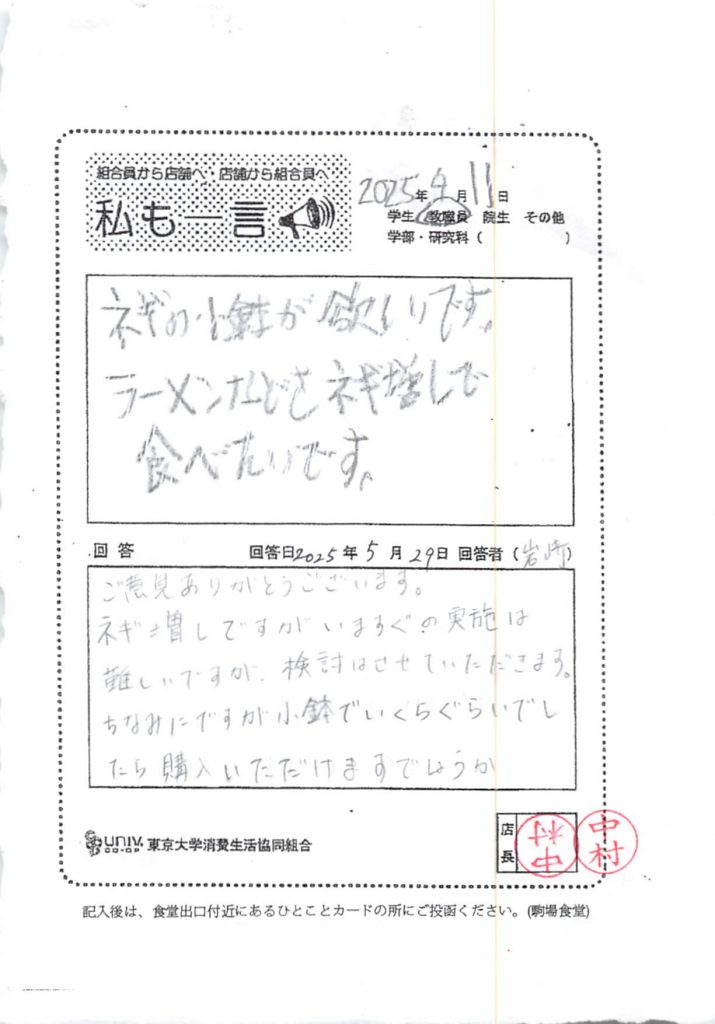 組合員から店舗へ・店舗から組合員へ
私も一言
2025年4月11日
学生 教職員 院生 その他
学部・研究科 ( )
ネギの小鉢が欲しいです。
ラーメンなどをネギ増しで
食べたいです。
回答 回答日2025年5月29日 回答者 (岩崎)
ご意見ありがとうございます。
ネギ増しですがいますぐの実施は
難しいですが、検討はさせていただきます。
ちなみにですが小鉢でいくらぐらいでし
たら購入いただけますでしょうか
univ. CO-OP 東京大学消費生活協同組合
店長 中村 中村
記入後は、食堂出口付近にあるひとことカードの所にご投函ください。(駒場食堂)